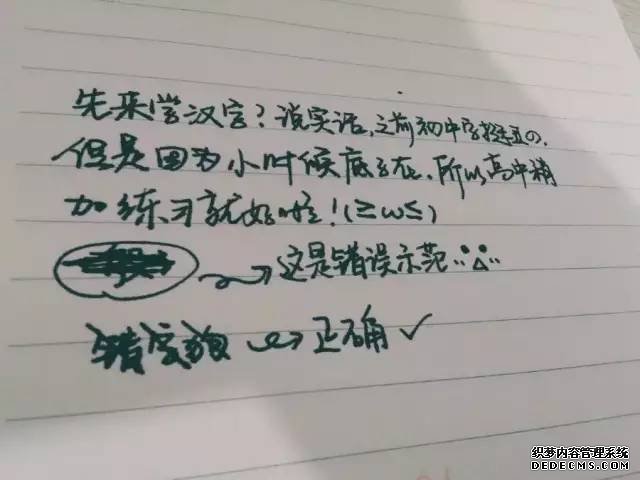 先来尝汉字？说实话，之前初中字挺丑の，
但是因为小时候底子在，所以高中稍
加练习就好啦！(≥ω≤)
这是错误示范
正确 ✓
织梦内容管理系统
DEDECMS.COM